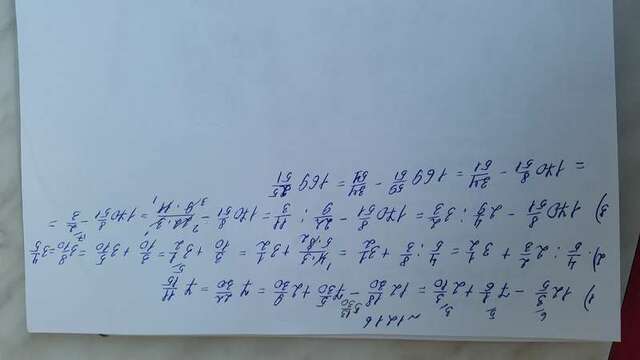 №1216
1) 12 3/5 − 7 1/6 + 2 3/10 = 12 18/30 − 7 5/30 + 2 9/30 = 7 22/30 = 7 11/15
2) 4/5 : 2 2/3 + 3 1/2 = 4/5 : 8/3 + 3 1/2 = 4·3/5·8 + 3 1/2 = 3/10 + 3 1/2 = 3/10 + 3 5/10 = 3 8/10 = 3 4/5
3) 170 8/51 − 2 4/9 : 3 2/3 = 170 8/51 − 22/9 : 11/3 = 170 8/51 − 22·3/9·11 = 170 8/51 − 2/3 =
= 170 8/51 − 34/51 = 169 59/51 − 34/51 = 169 25/51